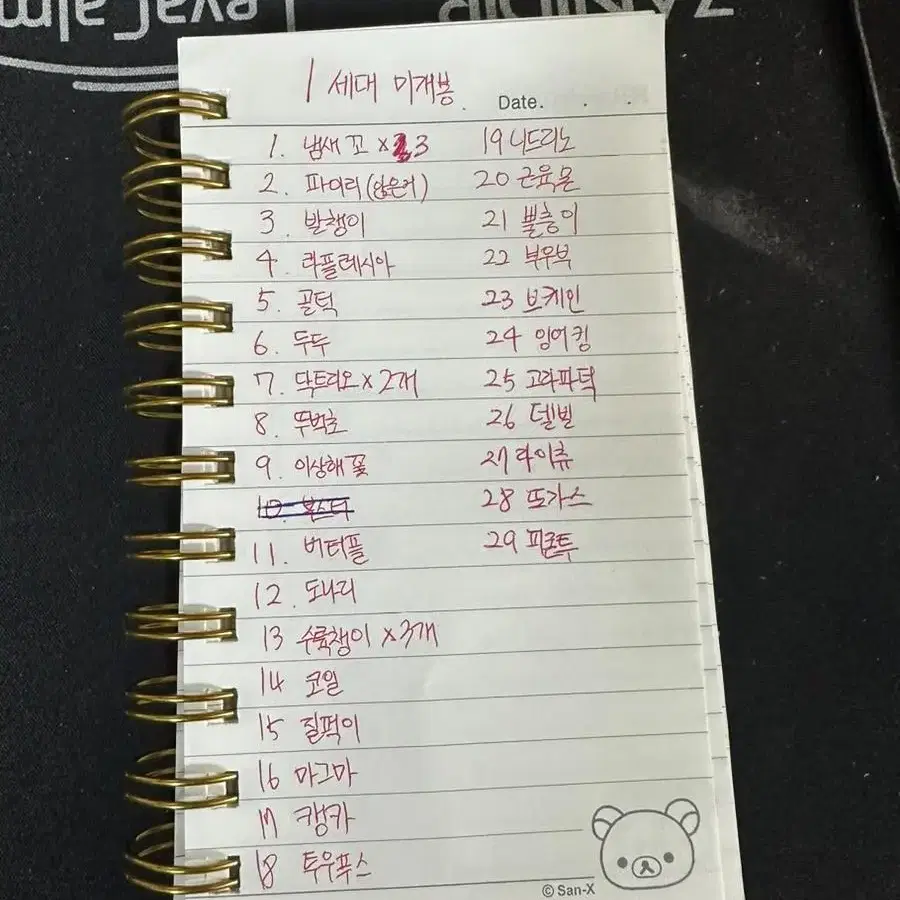 1세대 미개봉.
Date. . .
1. 냄새꼬 x 3
2. 파이리(앉은거)
3. 발챙이
4. 라플레시아
5. 골덕
6. 두두
7. 닥트리오 x 2개
8. 뚜벅초
9. 이상해꽃
10. 부스터
11. 버터플
12. 도나리
13 수륙챙이 x3개
14 코일
15 질퍽이
16 마그마
17 캥카
18 투우푸스
19 니드리노
20 근육몬
21 뿔충이
22 부우부
23 브케인
24 잉어킹
25 고라파덕
26 델빌
27 라이츄
28 또가스
29 피죤투
© San-X